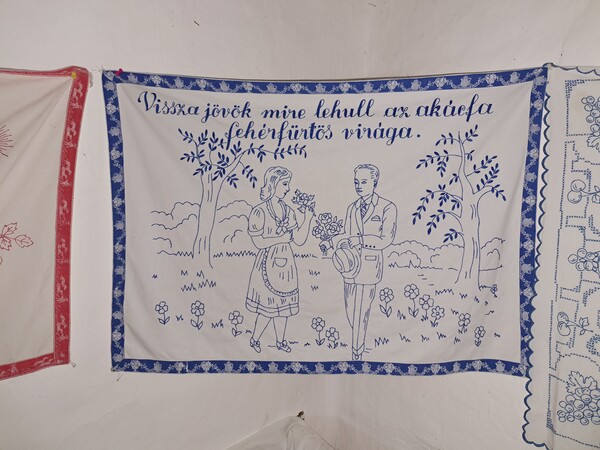 Vissza jövök mire lehull az akácfa
fehérfürtös virága.